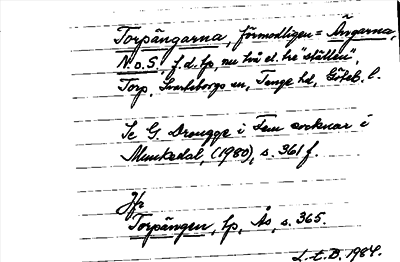 Torpängarna, förmodligen = Ängarna,
N. o. S., f. d. lp, nu två el. tre "ställen",
Torp, Svarteborgs sn, Tunge hd, Göteb. l.
Se G Drougge i Fem socknar i
Munkedal, (1980), s. 361 f.
Jfr
Torpängen, lp, Ås, s. 365.
L. E. D. 1984.